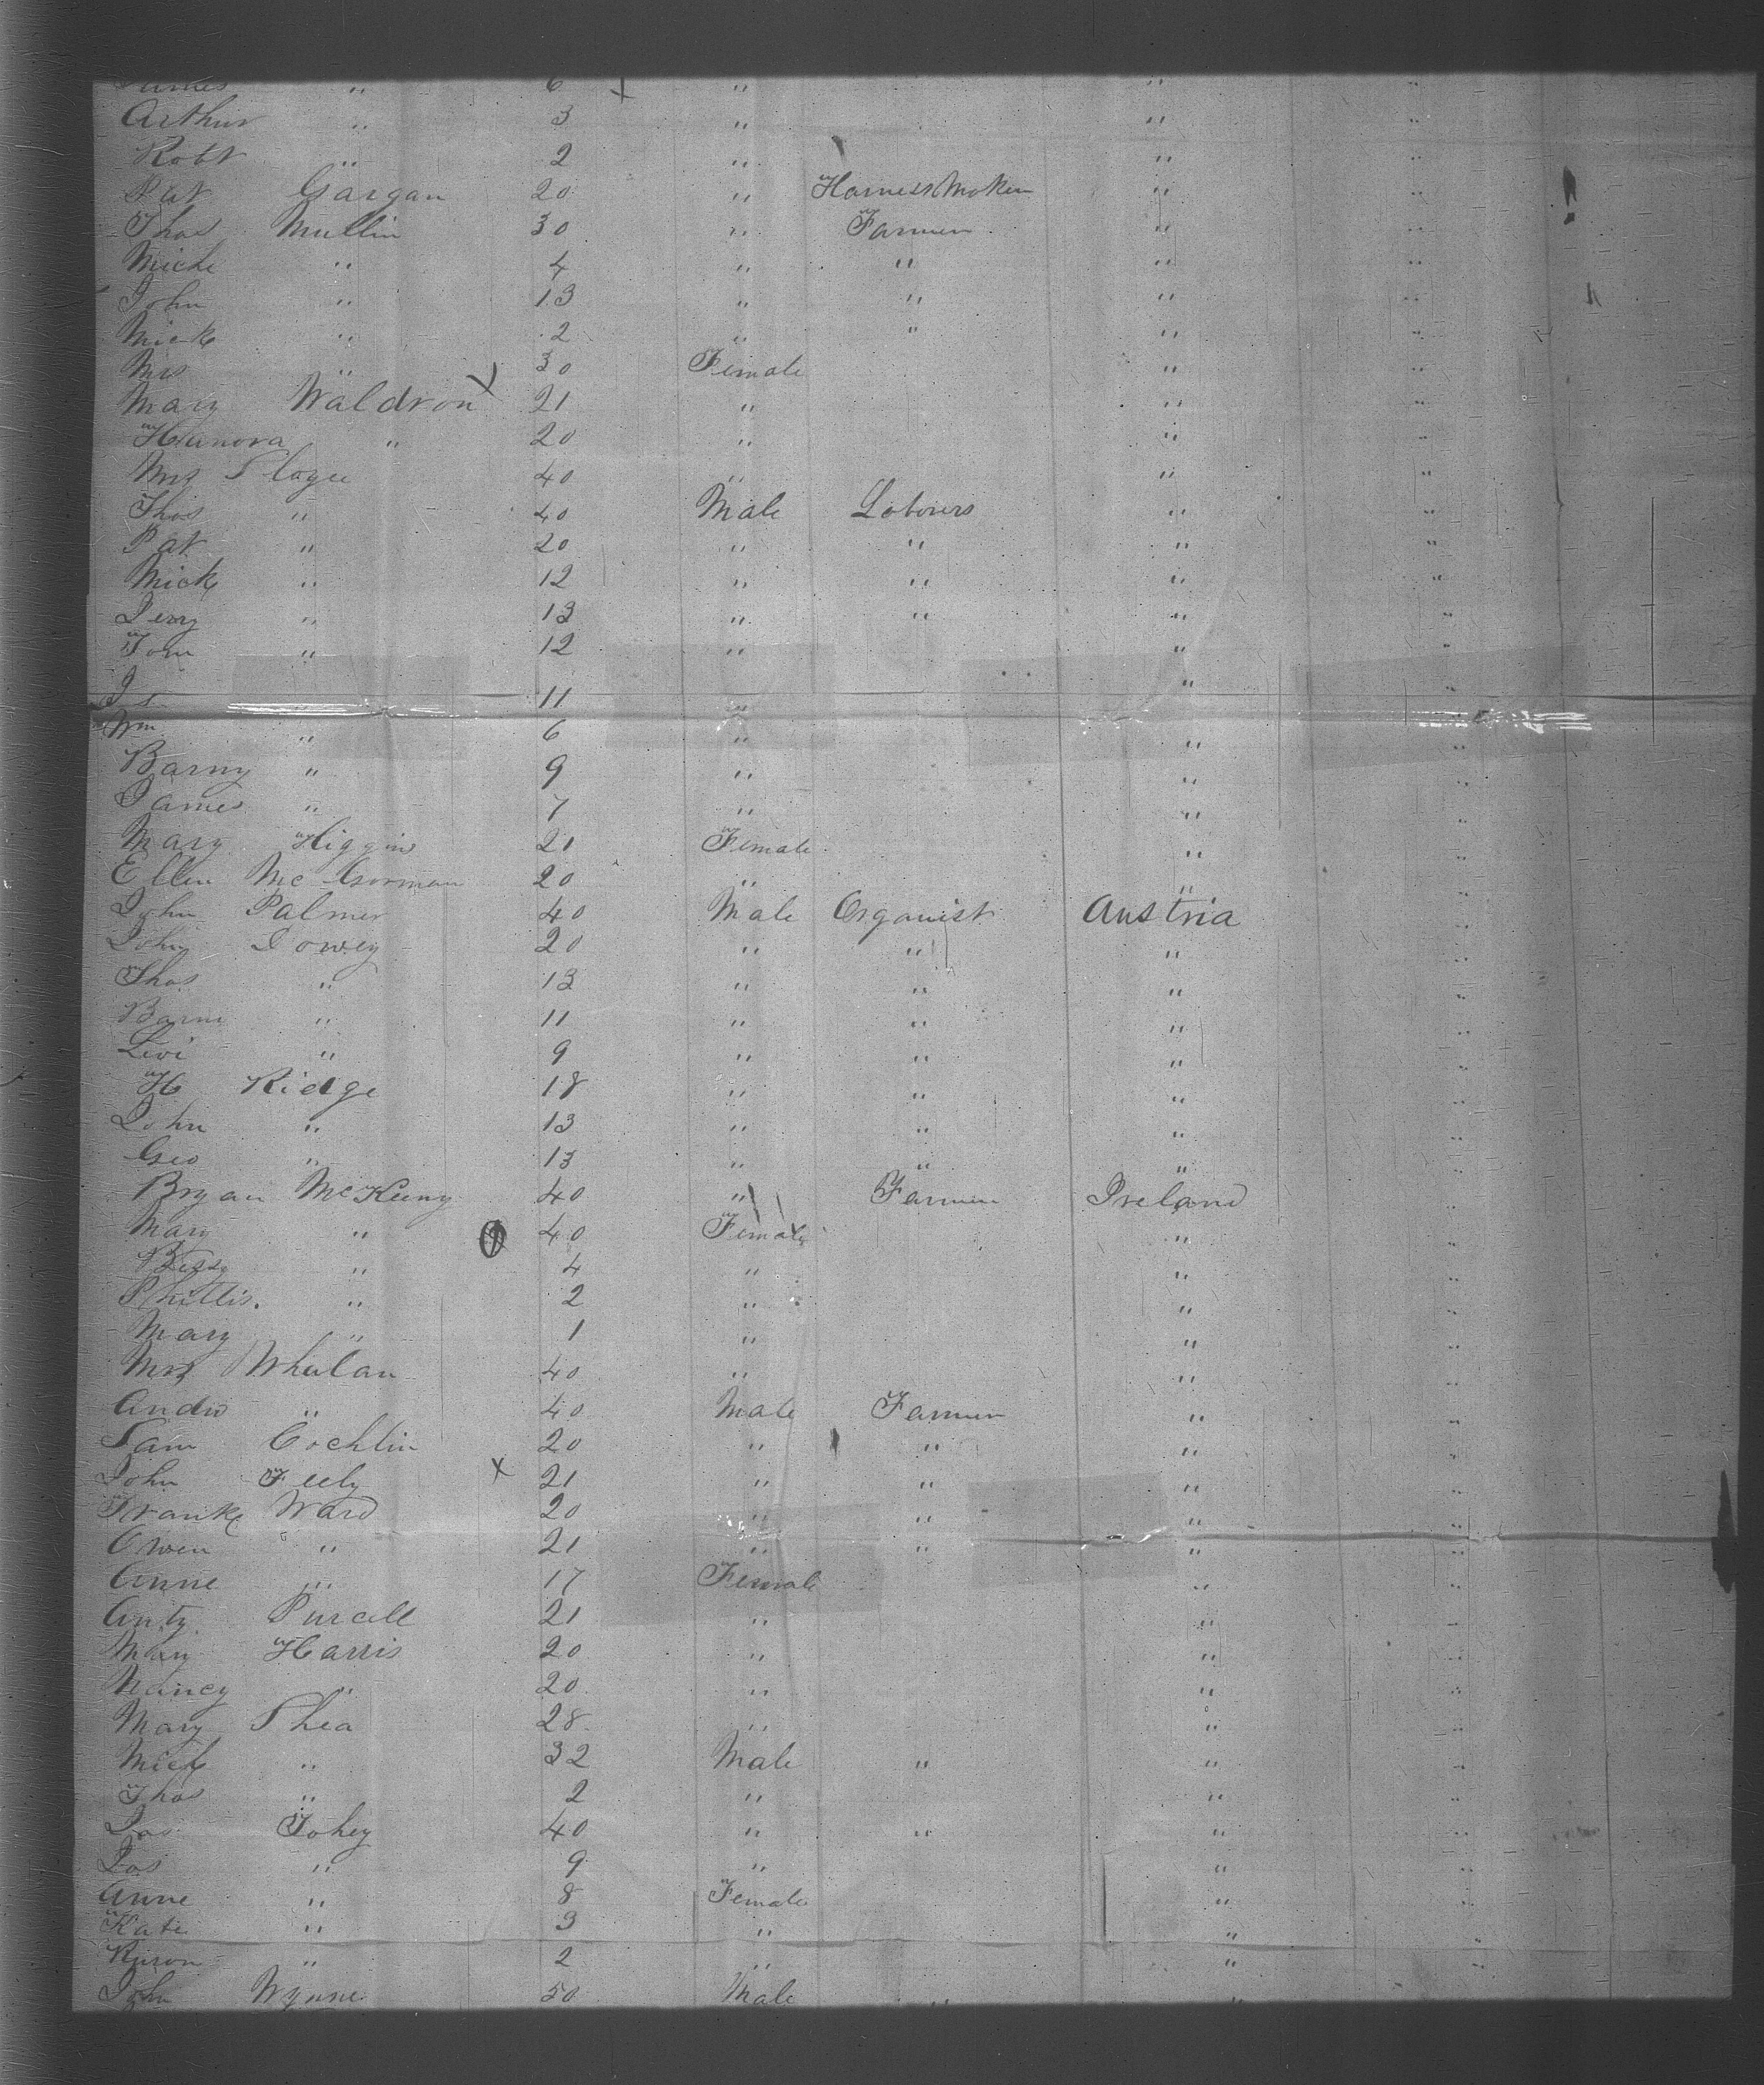 James " 6 x " " "
Arthur " 3 " " "
Robt " 2 " " "
Pat Gargan 20 " Harness Maker " "
Thos Mullin 30 " Farmer " "
Miche " 4 " " " "
John " 13 " " " "
Mick " 2 " " " "
Mrs " 30 Female " "
Mary Waldron x 21 " " "
Hanora " 20 " " "
Mrs Slogee 40 " " "
Thos " 40 Male Laborers " "
Pat " 20 " " " "
Mick " 12 " " " "
Jerry " 13 " " " "
Tom " 12 " " "
" 11 " " "
Wm " 6 " " "
Barny " 9 " " "
James " 7 " " "
Mary Higgins 21 Female " "
Ellen McGorman 20 " " "
John Palmer 40 Male Organist Austria "
John Dowey 20 " " " "
Thos " 13 " " " "
Barni " 11 " " " "
Levi " 9 " " " "
H Ridge 18 " " " "
John " 13 " " " "
Geo " 13 " " " "
Bryan McKeeny 40 " Farmer Ireland "
Mary " 40 Female " "
Bessy " 4 " " "
Phillis. " 2 " " "
Mary " 1 " " "
Mrs Whelan 40 " " "
Andw " 40 Male Farmer " "
Sam Cochlin 20 " " " "
John Feely x 21 " " " "
Franke Ward 20 " " " "
Owen " 21 " " " "
Anne " 17 Female " "
Anty Purcell 21 " " "
Mary Harris 20 " " "
Nancy " 20 " " "
Mary Shea 28 " " "
Mick " 32 Male " " "
Thos " 2 " " "
Jas Fohey 40 " " " "
Jos " 9 " " "
Anne " 8 Female " "
Kate " 3 " " "
" 2 " " "
John Wynne 50 Male " "